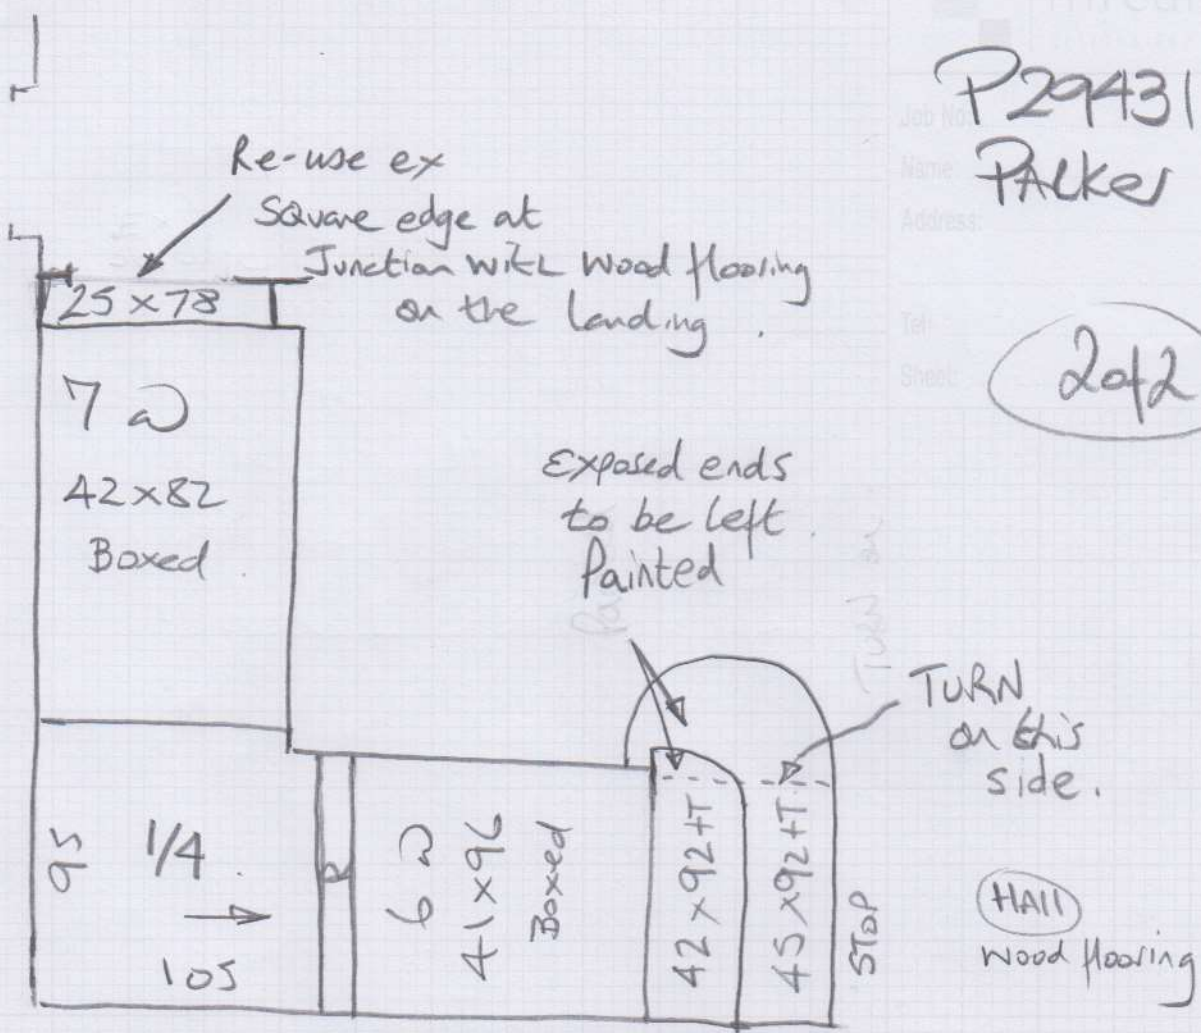 P29431
Job No:
Name: PALKer
Address:
Tel:
Sheet: 2of2
Re-use ex
Square edge at
Junction with wood flooring
on the landing.
25 x 78
7 @
42 x 82
Boxed
Exposed ends
to be left
Painted
TURN
on this
side.
95
1/4
105
R
6 @
41 x 96
Boxed
42 x 92 + T
45 x 92 + T
STOP
HAll
wood flooring